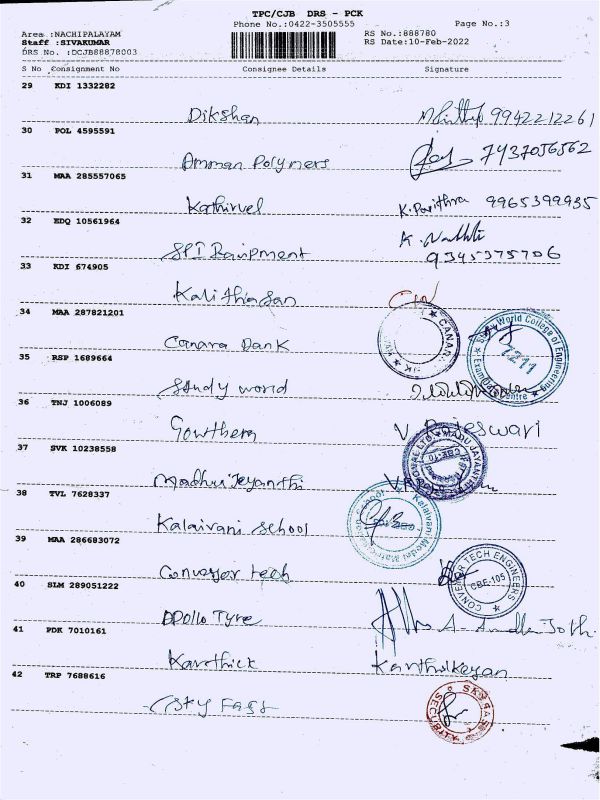 TPC/CJB DRS - PCK
Phone No.:0422-3505555 Page No.:3
Area :NACHIPALAYAM RS No.:888780
Staff :SIVAKUMAR RS Date:10-Feb-2022
DRS No. :DCJB88878003
S No Consignment No Consignee Details Signature
29 KDI 1332282
Dikshan 9942212261
30 POL 4595591
Amman Polymers 7437056562
31 MAA 285557065
Kathirvel K. Pavithra 9965399935
32 EDQ 10561964
SPI 9345375706
33 KDI 674905
34 MAA 287821201
Canara Bank CANARA
35 RSP 1689664
Study world Study World College of Engineering 7211
36 TNJ 1006089
Gowtham V. Rajeswari
37 SVK 10238558
Madhu Jeyanthi MADU JAYANTHI
38 TVL 7628337
Kalaivani School Kalaivani
39 MAA 286683072
Conveyor tech CONVEYOR TECH ENGINEERS CBE-105
40 SLM 289051222
Apollo Tyre
41 PDK 7010161
Karthick Karthikeyan
42 TRP 7688616
Sky Fass SECURITY